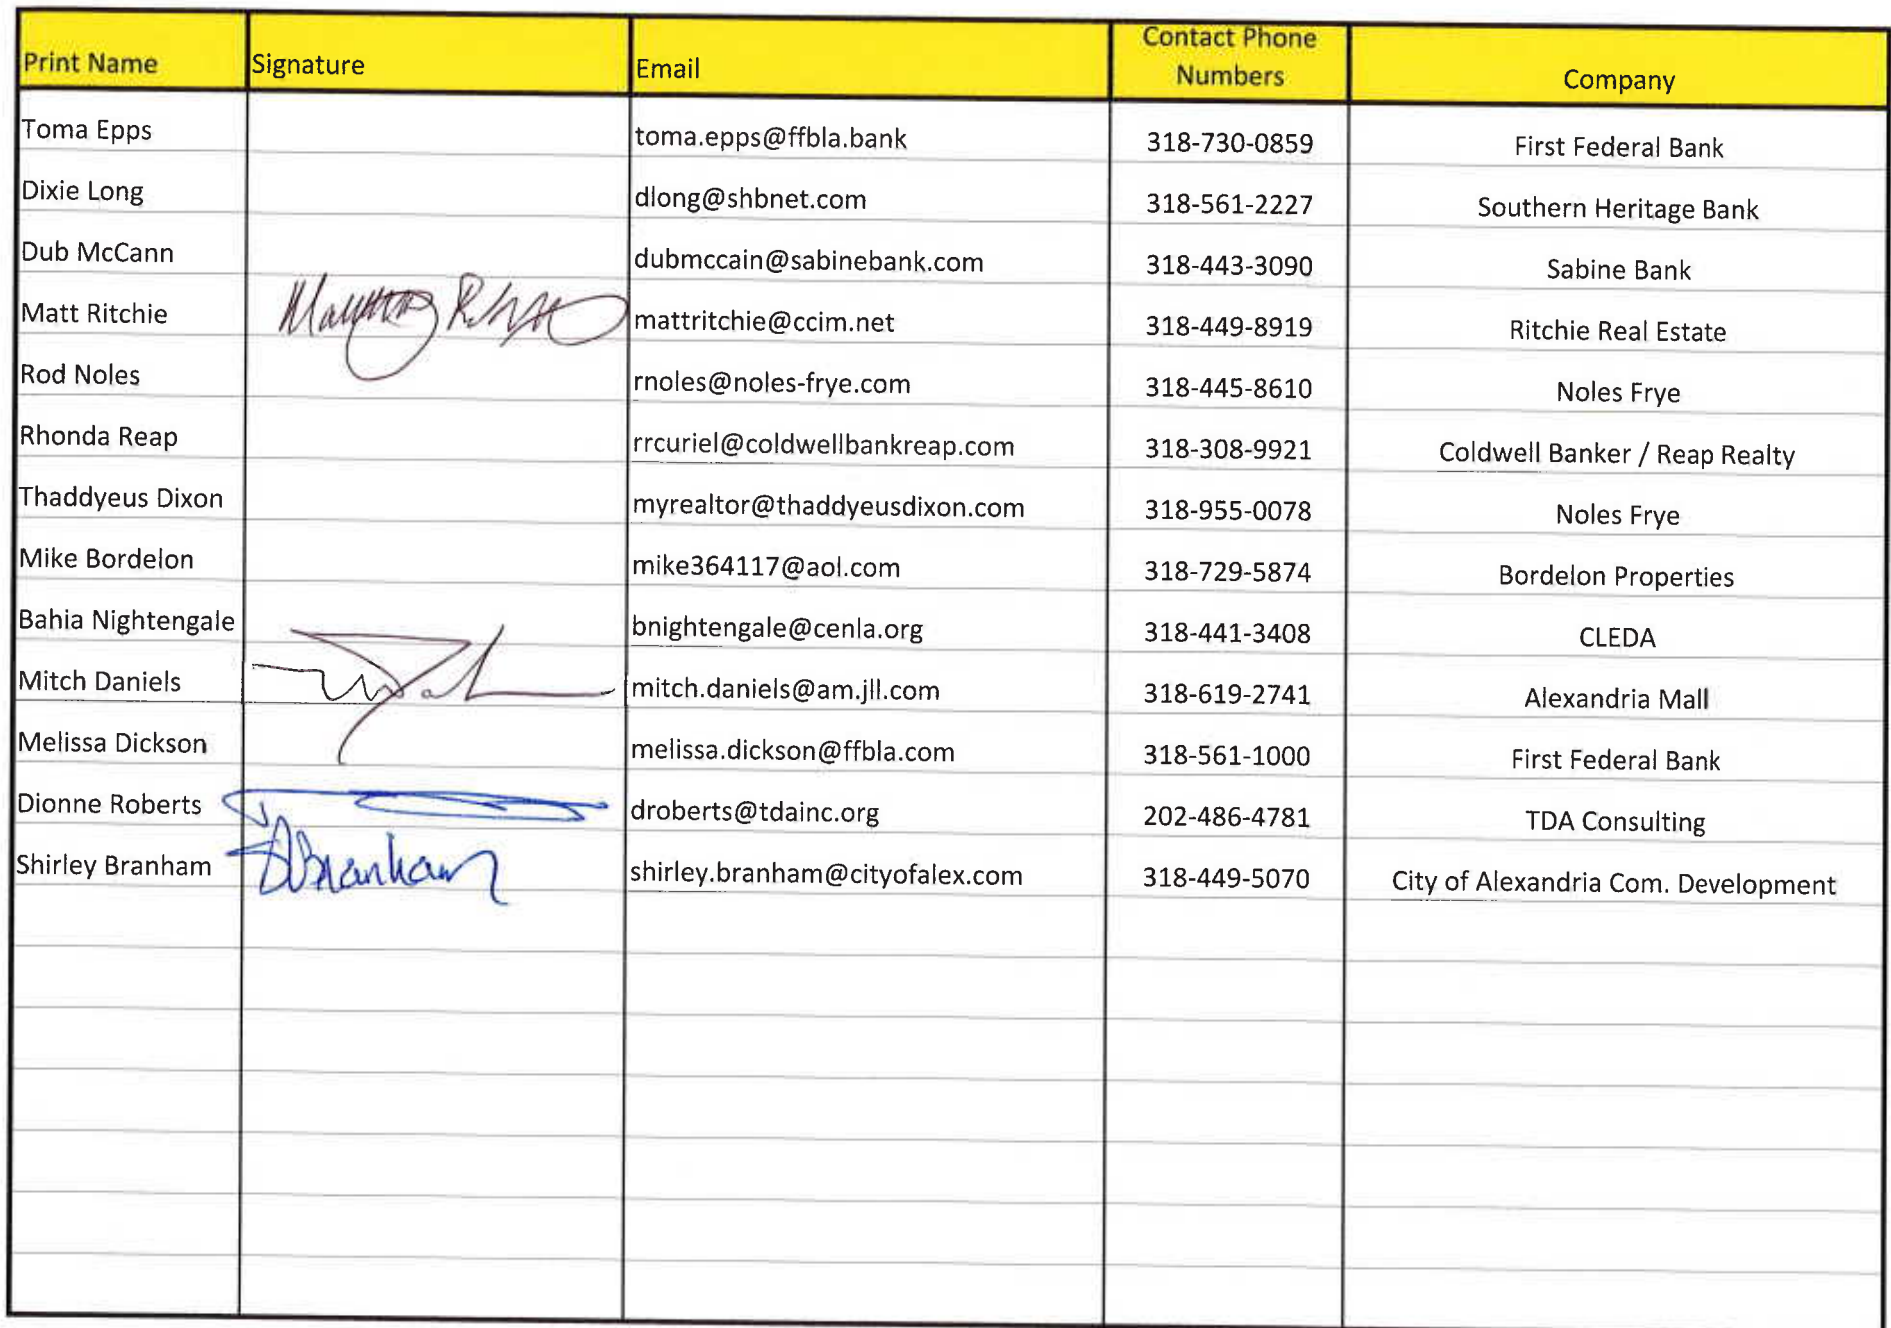 Print Name Signature Email Contact Phone Numbers Company
Toma Epps toma.epps@ffbla.bank 318-730-0859 First Federal Bank
Dixie Long dlong@shbnet.com 318-561-2227 Southern Heritage Bank
Dub McCann dubmccain@sabinebank.com 318-443-3090 Sabine Bank
Matt Ritchie mattritchie@ccim.net 318-449-8919 Ritchie Real Estate
Rod Noles rnoles@noles-frye.com 318-445-8610 Noles Frye
Rhonda Reap rrcuriel@coldwellbankreap.com 318-308-9921 Coldwell Banker / Reap Realty
Thaddyeus Dixon myrealtor@thaddyeusdixon.com 318-955-0078 Noles Frye
Mike Bordelon mike364117@aol.com 318-729-5874 Bordelon Properties
Bahia Nightengale bnightengale@cenla.org 318-441-3408 CLEDA
Mitch Daniels mitch.daniels@am.jll.com 318-619-2741 Alexandria Mall
Melissa Dickson melissa.dickson@ffbla.com 318-561-1000 First Federal Bank
Dionne Roberts droberts@tdainc.org 202-486-4781 TDA Consulting
Shirley Branham Branham shirley.branham@cityofalex.com 318-449-5070 City of Alexandria Com. Development